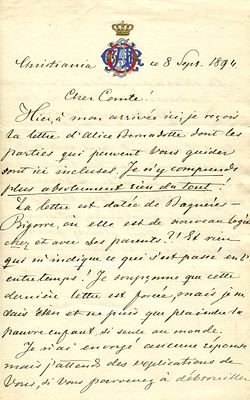 Christiania ce 8 Sept. 1894
Cher Comte!
Hier, à mon arrivée ici, je reçois
la lettre d'Alice Bernadotte dont les
parties qui peuvent Vous guider
sont ici incluses. Je n'y comprends
plus absolument rien du tout!
La lettre est datée de Bagnères-
Bigorre, où elle est de nouveau logée
chez et avec ses parents?! Et rien
qui m'indique ce qui s'est passé en l'
entretemps! Je soupçonne que cette
dernière lettre est forcée, mais je n'en
sais rien et ne puis que plaindre la
pauvre enfant, si seule au monde.
Je n'ai envoyé aucune réponse
mais j'attends des explications de
Vous, si Vous parvenez à débrouiller